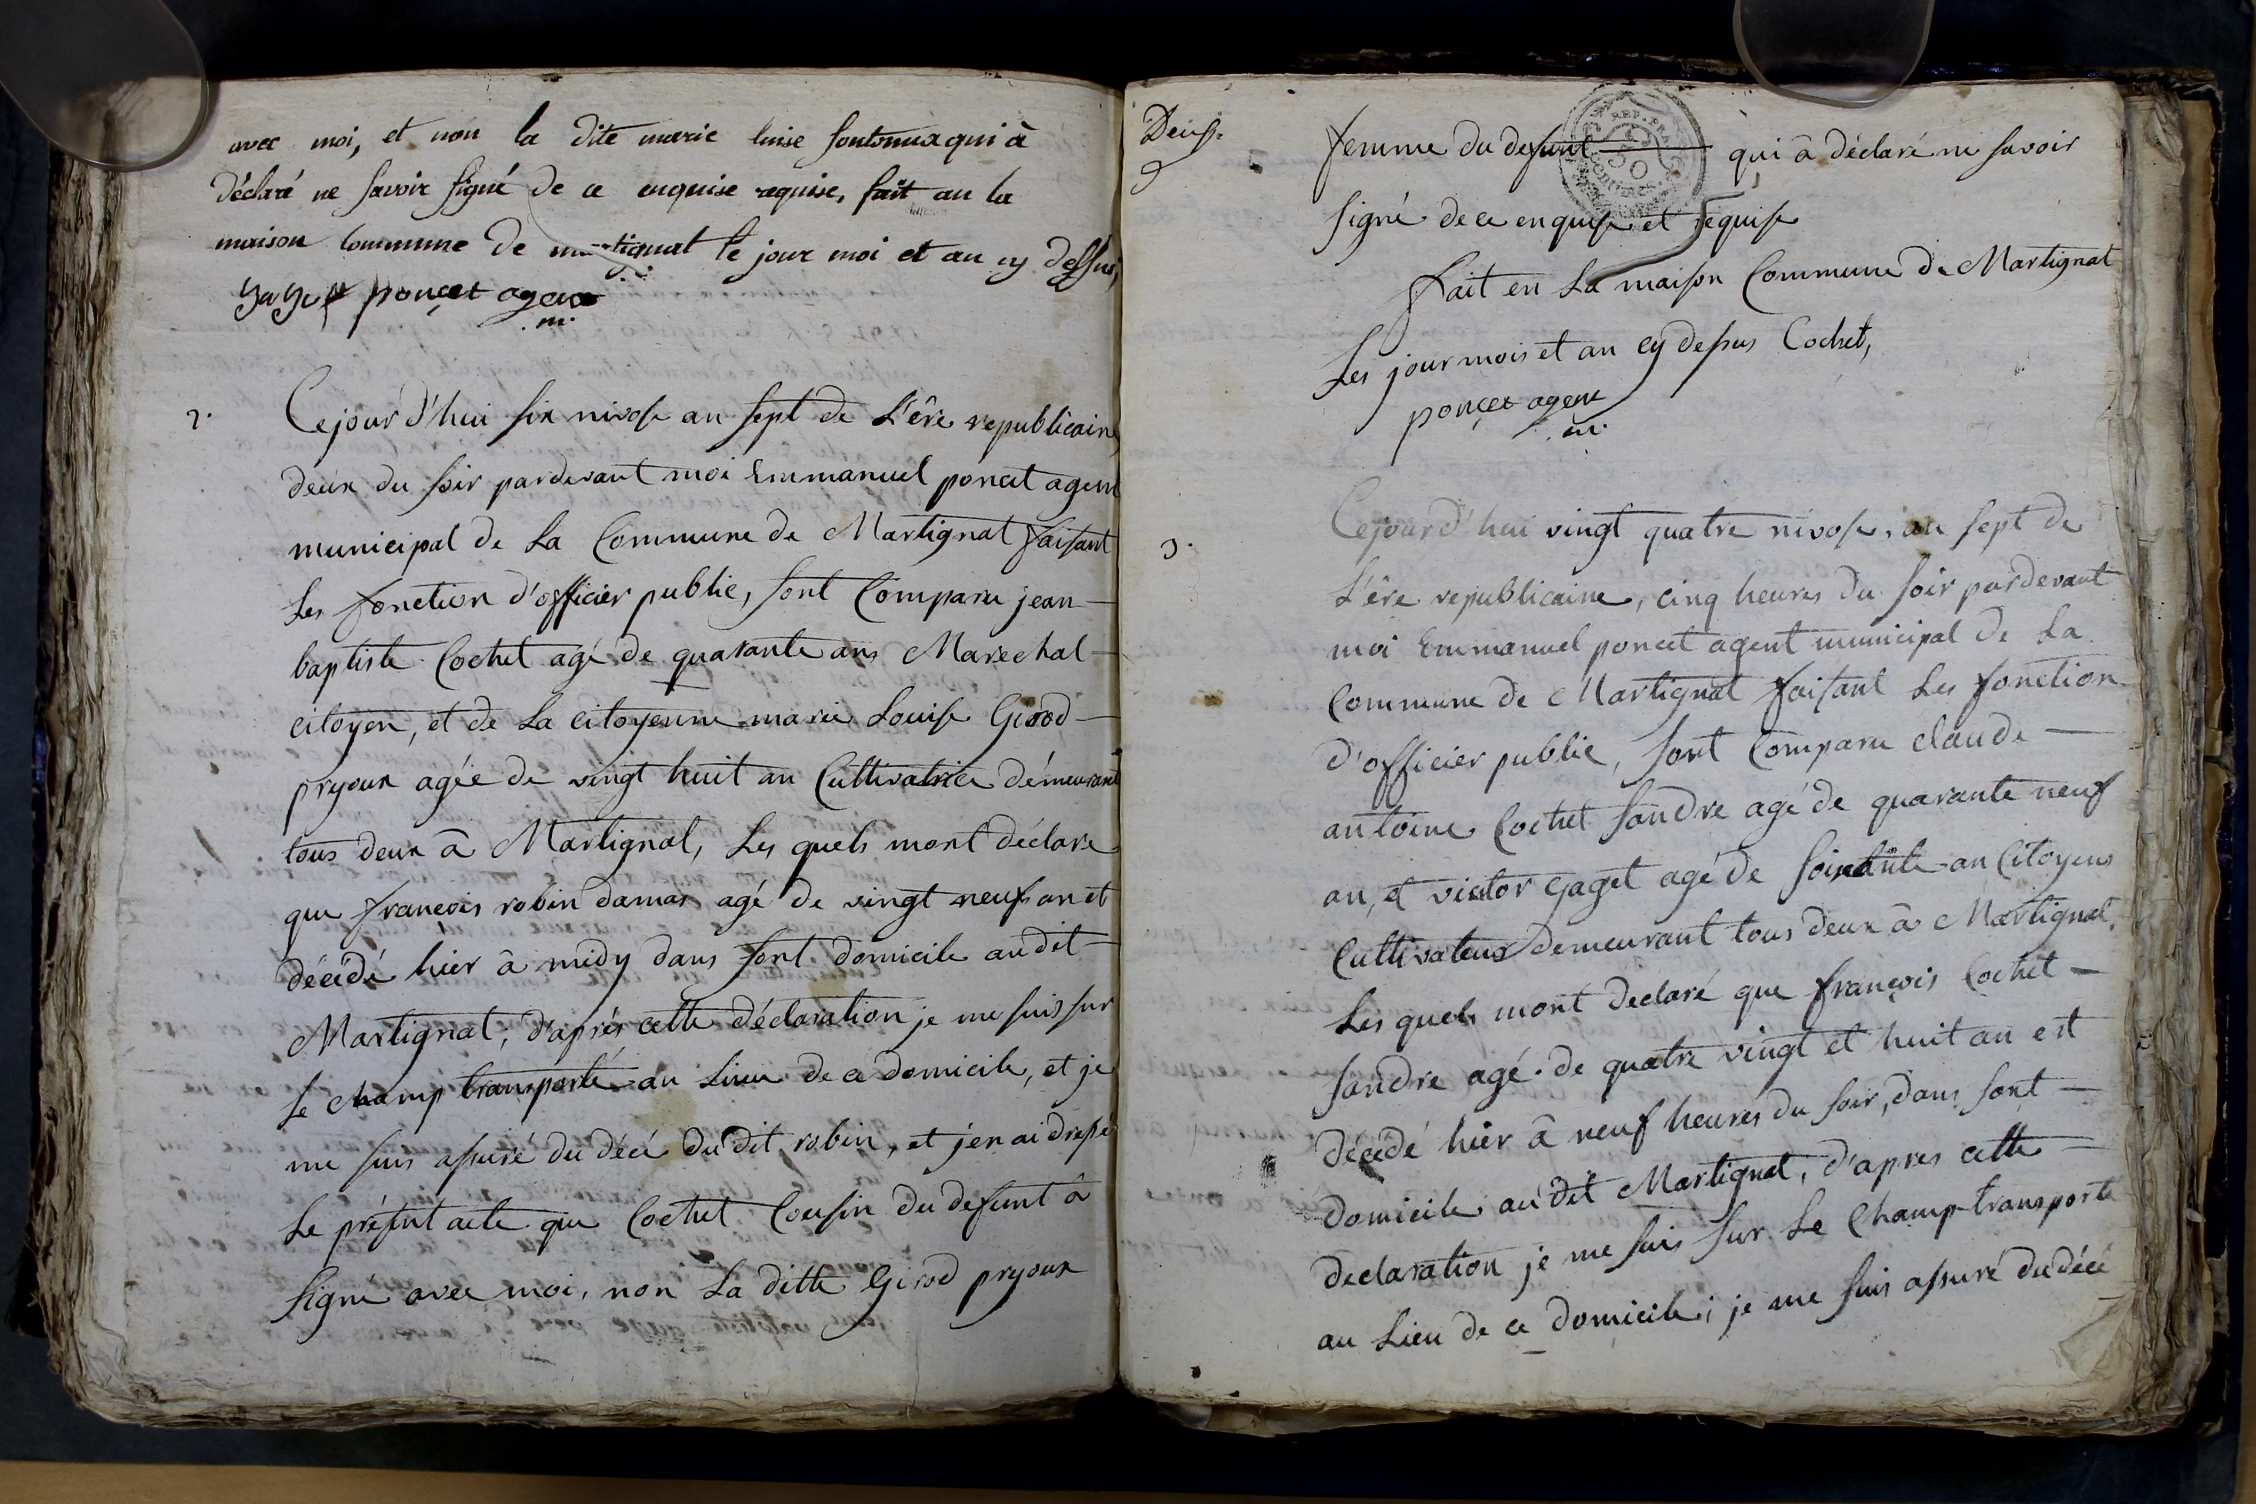 avec moi, et non la dite marie luise qui à
déclaré ne savoir signé de ce enquise requise, fait au la
maison commune de martignat le jour moi et an cy dessus,
ponçet agent
.m.
2.
Cejour d'hui six nivose an sept de L'êre republicaine
deux du soir pardevant moi Emmanuel poncet agent
municipal de La Commune de Martignat faisant
Les fonction d'officier public, sont Comparu jean
baptiste Cochet agé de quarante ans Marechal
citoyen, et de La citoyenne marie Louise Girod
pryoux agée de vingt huit an Cultivatrice démeurant
tous deux à Martignat, Les quels mont déclare
que françois robin damas agé de vingt neuf an et
décédé hier à midy dans sont domicile audit
Martignat, d'aprés cette déclaration je me suis sur
Le champ transporté au Lieu de ce domicile, et je
me suis assuré du décé du dit robin, et jen ai dressé
Le présent acte que Cochet Cousin du defunt à
signé avec moi, non La ditte Girod pryoux
Deuse
9
femme du defunt qui à déclaré ne savoir
signé de ce enquise et requise
fait en La maison Commune de Martignat
Les jour mois et an cy dessus Cochet,
ponçet agent
.m.
3.
Cejourd'hui vingt quatre nivose, an sept de
L'êre republicaine, cinq heures du soir pardevant
moi Emmanuel poncet agent municipal de La
Commune de Martignat faisant Les fonction
d'officier public, sont Comparu claude
antoine Cochet Sandre agé de quarante neuf
an, et victor gaget agé de soixante an Citoyens
Cultivateur demeurant tous deux à Martignat,
Les quels mont declaré que françois Cochet
Sandre agé de quatre vingt et huit an est
décédé hier à neuf heures du soir, dans sont
domicile au dit Martignat, d'apres cette
declaration je me suis sur Le Champ transporté
au Lieu de ce domicile, je me suis assuré du décé